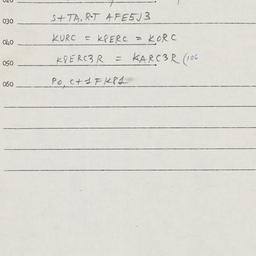 030 S+TA, R-T AFE5J3
040 KURC = K8ERC = KORC
050 K8ERC3R = KARC3R (106
060 PO, C+1FKP1